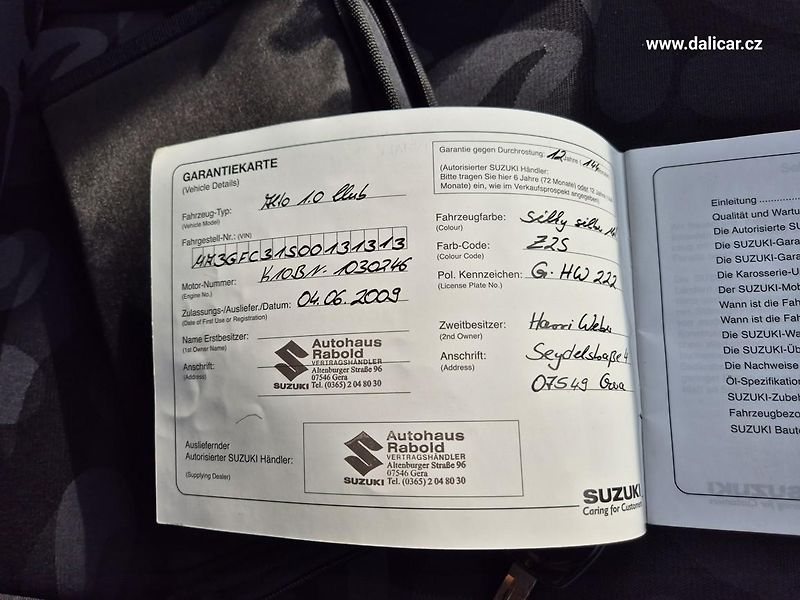 www.dalicar.cz
GARANTIEKARTE
(Vehicle Details)
Fahrzeug-Typ: Alto 1.0 Club
(Vehicle Model)
Fahrgestell-Nr.: (VIN)
MA3GFC31S00131313
Motor-Nummer: K10BN-1030246
(Engine No.)
Zulassungs-/Ausliefer./Datum: 04.06.2009
(Date of First Use or Registration)
Name Erstbesitzer:
(1st Owner Name)
Anschrift:
(Address)
SUZUKI
Autohaus
Rabold
VERTRAGSHÄNDLER
Altenburger Straße 96
07546 Gera
Tel. (0365) 2 04 80 30
Ausliefernder
Autorisierter SUZUKI Händler:
(Supplying Dealer)
SUZUKI
Autohaus
Rabold
VERTRAGSHÄNDLER
Altenburger Straße 96
07546 Gera
Tel. (0365) 2 04 80 30
Garantie gegen Durchrostung: 12 Jahre (144
(Autorisierter SUZUKI Händler:
Bitte tragen Sie hier 6 Jahre (72 Monate) oder 12 Jahre
Monate) ein, wie im Verkaufsprospekt angegeben)
Fahrzeugfarbe: Silky silver
(Colour)
Farb-Code: Z2S
(Colour Code)
Pol. Kennzeichen: G-HW 222
(License Plate No.)
Zweitbesitzer: Harri Weber
(2nd Owner)
Anschrift: Seydelstraße 4
(Address)
07549 Gera
SUZUKI
Caring for Custome
Einleitung
Qualität und Wartu
Die Autorisierte SU
Die SUZUKI-Gara
Die SUZUKI-Gara
Die Karosserie-U
Der SUZUKI-Mob
Wann ist die Fah
Wann ist die Fah
Die SUZUKI-Wa
Die SUZUKI-Üb
Die Nachweise
Öl-Spezifikation
SUZUKI-Zubeh
Fahrzeugbezo
SUZUKI Baute